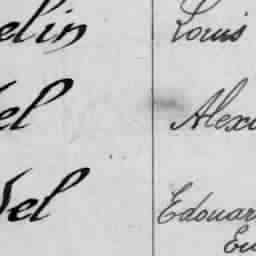 elin Louis
el Alexi
del Edouar
Eu